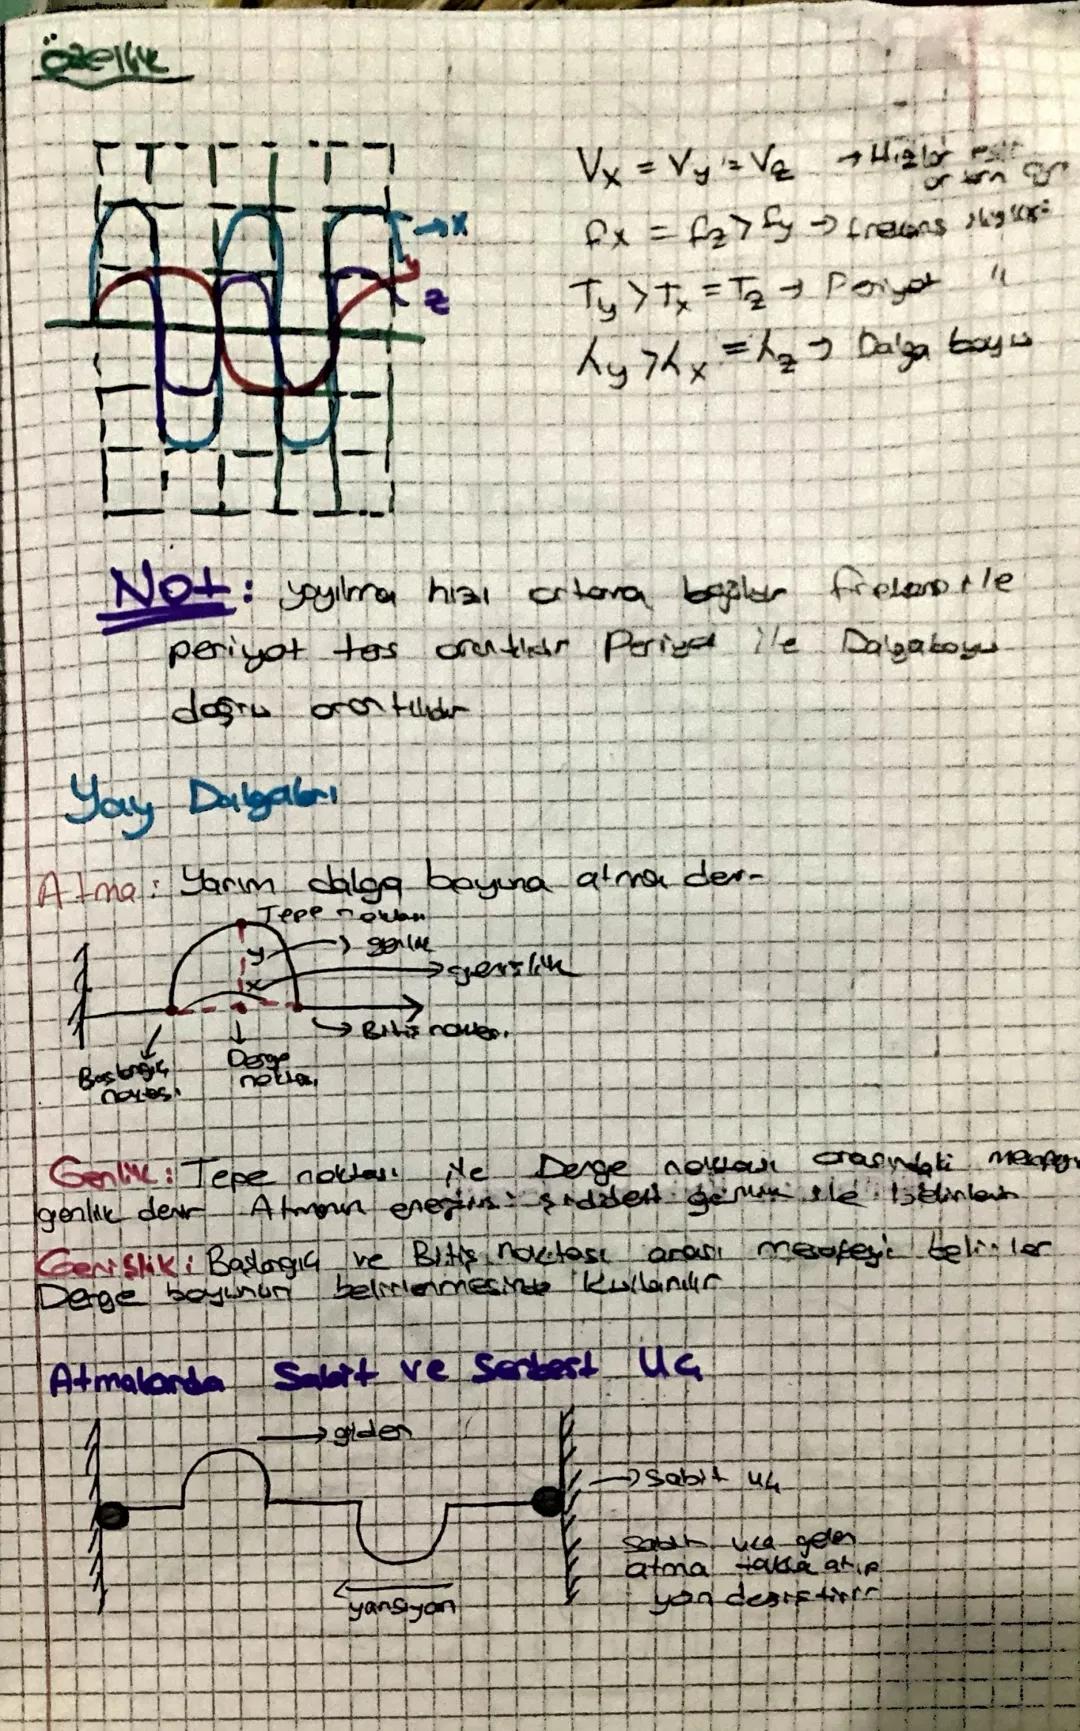 özellik
Vx = Vy = Vz → Hızlar eşit
ortam
fx = fz > fy → frekans ilişkisi
→ x
z
Ty > Tx = Tz → Periyot "
λy > λx = λz → Dalga boyu
Not: yayılma hızı ortama bağlıdır frekans ile
periyot ters orantılıdır Periyot ile Dalgaboyu
doğru orantılıdır
Yay Dalgaları
Atma: Yarım dalga boyuna atma denir
Tepe noktası
y → genlik
x → genişlik
→ Bitiş noktası
Başlangıç noktası
Denge noktası
Genlik: Tepe noktası ile Denge noktası arasındaki mesafeye
genlik denir Atmanın enerjisi şiddeti genlik ile
Genişlik: Başlangıç ve Bitiş noktası arası mesafeyi belirler
Denge boyunun belirlenmesinde kullanılır
Atmalarda Sabit ve Serbest Uç
→ giden
→ Sabit uç
Sabit uca gelen
atma takla atıp
yön değiştirir
yansıyan